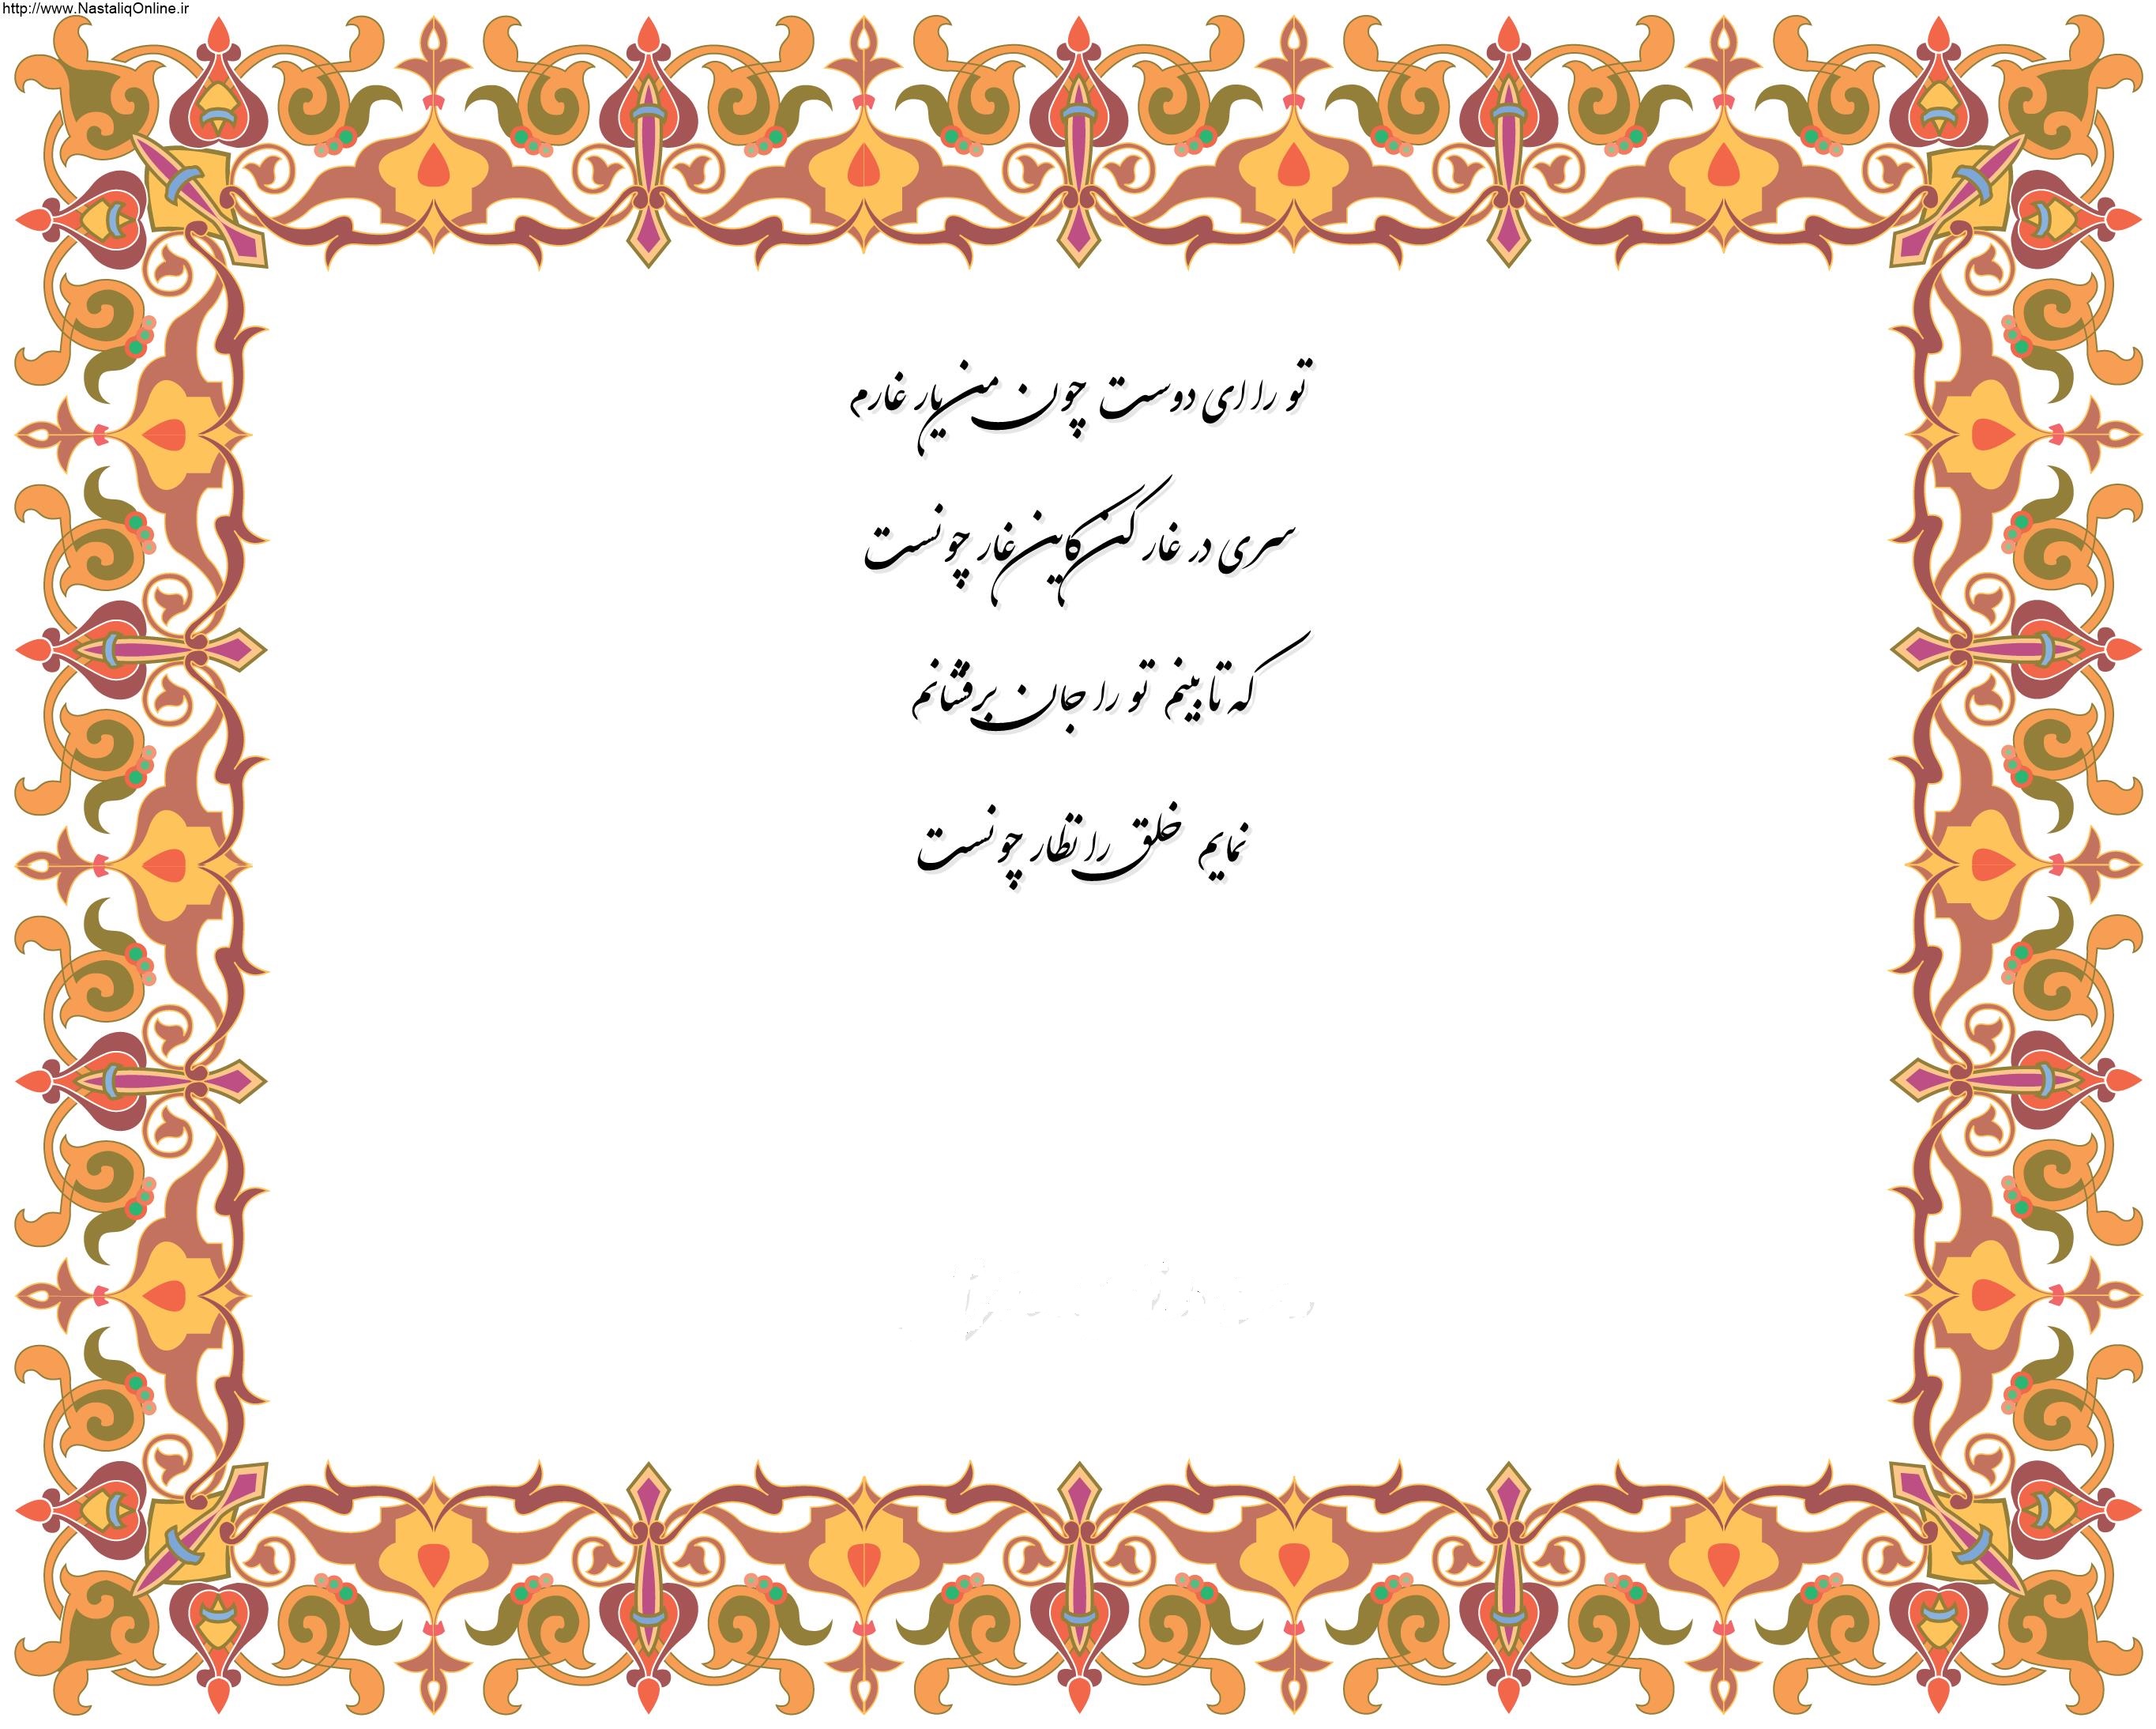 http://www.NastaliqOnline.ir
تو را ای دوست چون من یار غارم
سری در غار کن کاین غار چونست
که تا بینم تو را جان برفشانم
نمایم خلق را نظار چونست